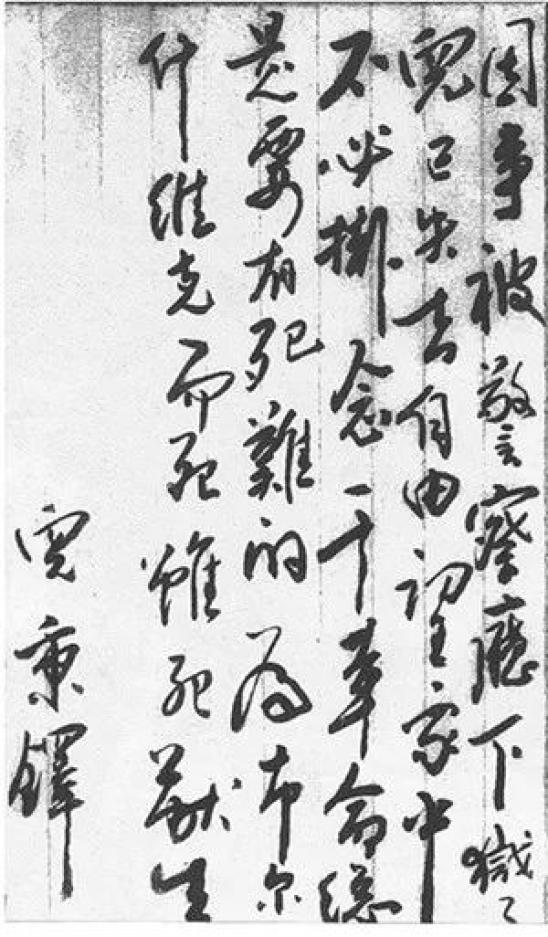 因事被警察廳下獄了
兒已失去自由望家中
不必掛念干革命總
是要有死難的為布尔
什維克而死雖死猶生
兒秉鐸